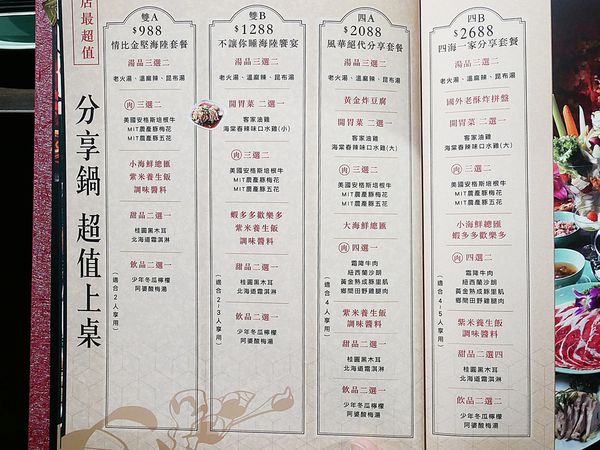 店最超值
分享鍋 超值上桌
雙A
$988
情比金堅海陸套餐
湯品三選二
老火湯、溫麻辣、昆布湯
肉 三選二
美國安格斯培根牛
MIT農產豚梅花
MIT農產豚五花
小海鮮總匯
紫米養生飯
調味醬料
甜品二選一
桂圓黑木耳
北海道霜淇淋
飲品二選一
少年冬瓜檸檬
阿婆酸梅湯
(適合2人享用)
雙B
$1288
不讓你睡海陸饗宴
湯品三選二
老火湯、溫麻辣、昆布湯
開胃菜 二選一
客家油雞
海棠春辣味口水雞(小)
肉 三選二
美國安格斯培根牛
MIT農產豚梅花
MIT農產豚五花
蝦多多歡樂多
紫米養生飯
調味醬料
甜品二選一
桂圓黑木耳
北海道霜淇淋
飲品二選一
少年冬瓜檸檬
阿婆酸梅湯
(適合2-3人享用)
四A
$2088
風華絕代分享套餐
湯品三選二
老火湯、溫麻辣、昆布湯
黃金炸豆腐
開胃菜 二選一
客家油雞
海棠春辣味口水雞(大)
肉 三選二
美國安格斯培根牛
MIT農產豚梅花
MIT農產豚五花
大海鮮總匯
肉 四選一
霜降牛肉
紐西蘭沙朗
黃金熟成豚里肌
鄉間田野雞腿肉
紫米養生飯
調味醬料
甜品二選一
桂圓黑木耳
北海道霜淇淋
飲品二選一
少年冬瓜檸檬
阿婆酸梅湯
(適合4人享用)
四B
$2688
四海一家分享套餐
湯品三選二
老火湯、溫麻辣、昆布湯
國外老酥炸拼盤
開胃菜 二選一
客家油雞
海棠春辣味口水雞(大)
肉 三選二
美國安格斯培根牛
MIT農產豚梅花
MIT農產豚五花
小海鮮總匯
蝦多多歡樂多
肉 四選二
霜降牛肉
紐西蘭沙朗
黃金熟成豚里肌
鄉間田野雞腿肉
紫米養生飯
調味醬料
甜品二選四
桂圓黑木耳
北海道霜淇淋
飲品二選二
少年冬瓜檸檬
阿婆酸梅湯
(適合4-5人享用)